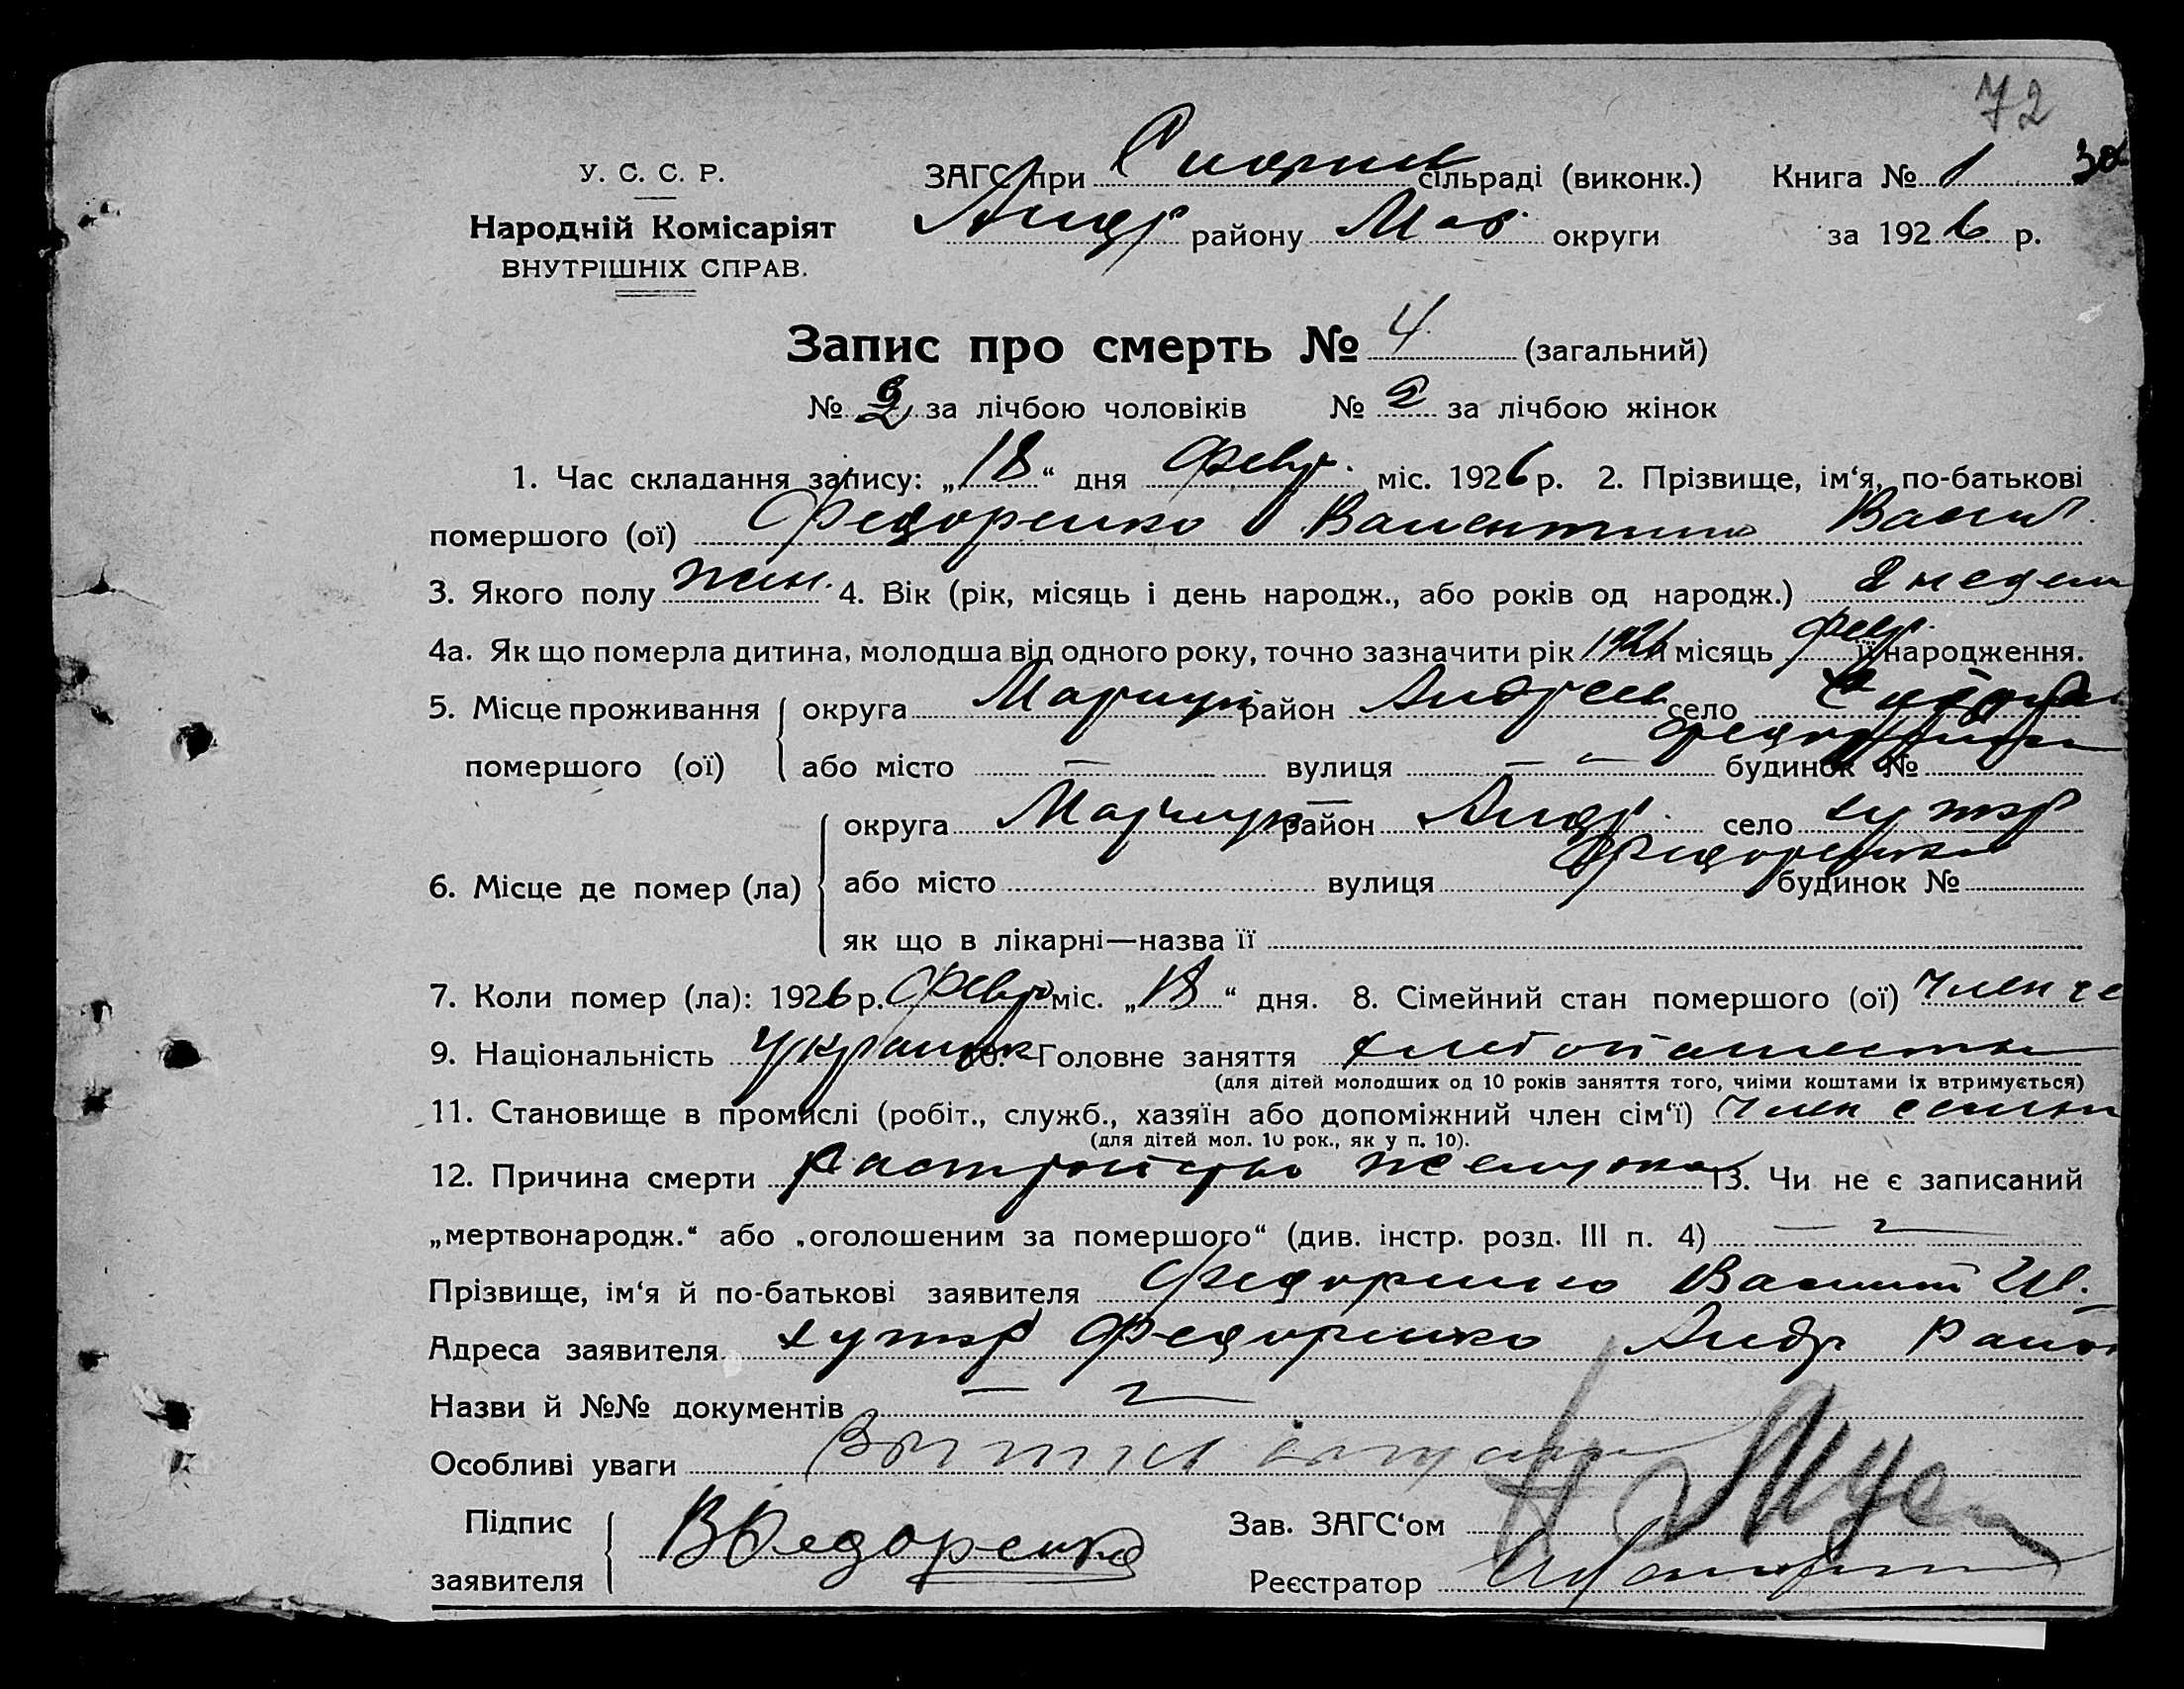 72
У. С. С. Р.
Народній Комісаріят
ВНУТРІШНІХ СПРАВ.
ЗАГС при сільраді (виконк.) Книга № 1 30
Андр району Мар. округи за 1926 р.
Запис про смерть № 4 (загальний)
№ 2 за лічбою чоловіків № 2 за лічбою жінок
1. Час складання запису: „18“ дня Февр. міс. 1926 р. 2. Прізвище, ім‘я, по-батькові
помершого (ої) Федоренко Валентина Васил.
3. Якого полу жен. 4. Вік (рік, місяць і день народж., або років од народж.) 2 недели
4а. Як що померла дитина, молодша від одного року, точно зазначити рік 1926 місяць Февр. її народження.
5. Місце проживання округа Мариуп район Андреев село
Федоренко
помершого (ої) або місто — вулиця — — будинок №
округа Мариуп район Андр. село хутор
Федоренко
6. Місце де помер (ла) або місто вулиця будинок №
як що в лікарні—назва її
7. Коли помер (ла): 1926 р. Февр міс. „18“ дня. 8. Сімейний стан помершого (ої) член се
9. Національність Украинк 10. Головне заняття хлебопашество
(для дітей молодших од 10 років заняття того, чиїми коштами їх втримується)
11. Становище в промислі (робіт., служб., хазяїн або допоміжний член сім‘ї) член семьи
(для дітей мол. 10 рок., як у п. 10).
12. Причина смерти расстройство желудка 13. Чи не є записаний
„мертвонародж.“ або „оголошеним за помершого“ (див. інстр. розд. III п. 4) —
Прізвище, ім‘я й по-батькові заявителя Федоренко Василий Ив.
Адреса заявителя хутор Федоренко Андр район
Назви й №№ документів —
Особливі уваги
Підпис заявителя ВФедоренко Зав. ЗАГС‘ом
Реєстратор